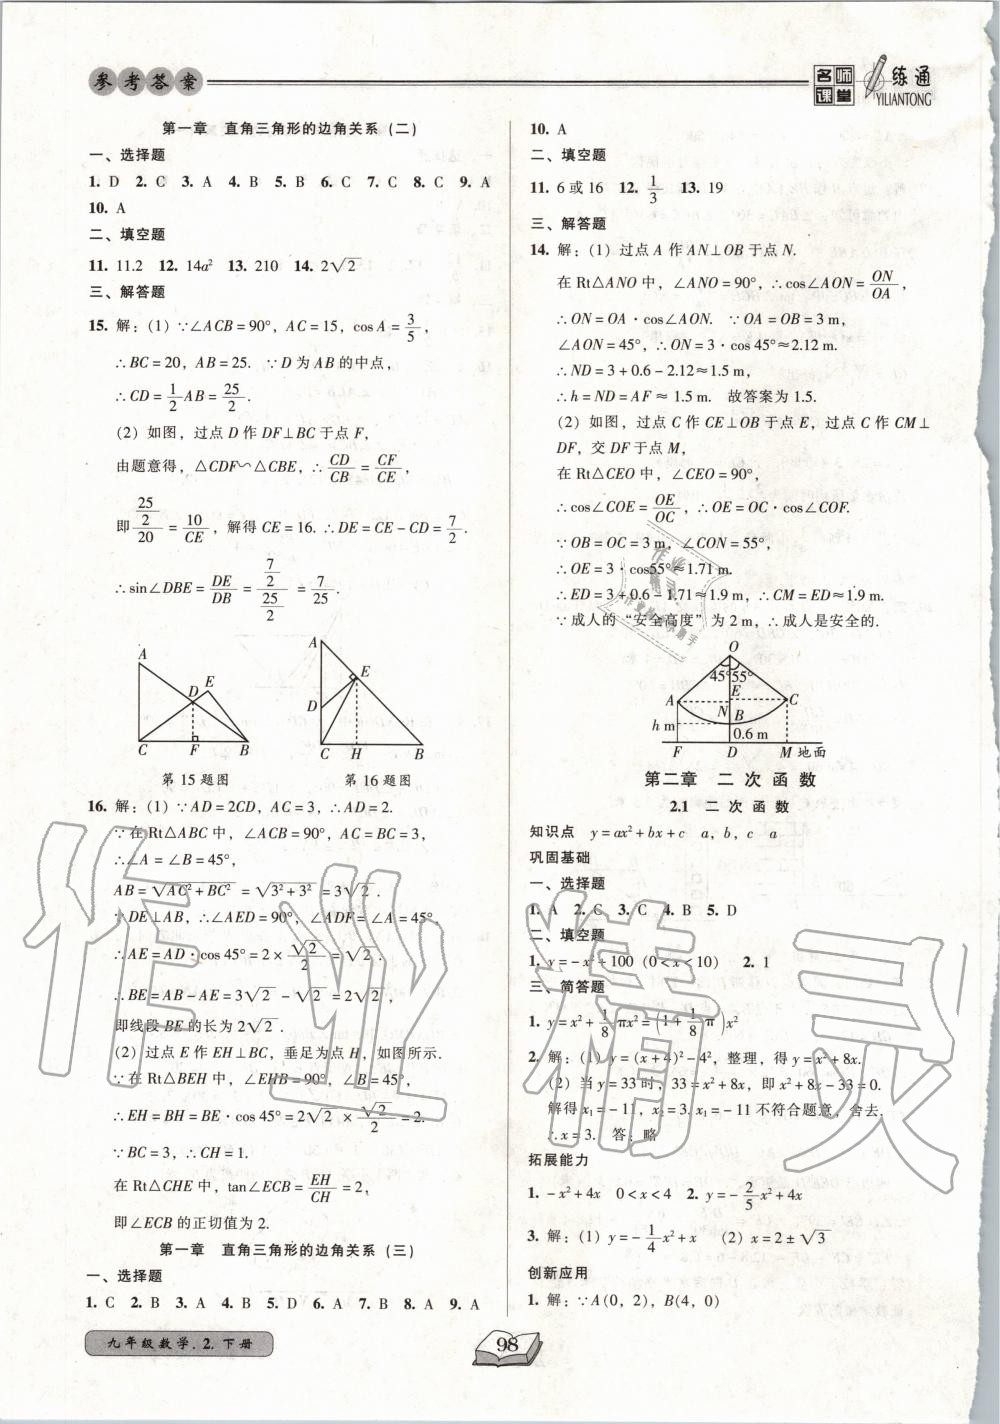 参考答案
名师课堂 一练通 YILIANTONG
第一章 直角三角形的边角关系(二)
一、选择题
1. D 2. C 3. A 4. B 5. B 6. C 7. C 8. C 9. A
10. A
二、填空题
11. 11.2 12. 14a² 13. 210 14. 2√2
三、解答题
15. 解:(1)∵∠ACB=90°,AC=15,cosA=3/5,
∴BC=20,AB=25. ∵D为AB的中点,
∴CD=1/2AB=25/2.
(2)如图,过点D作DF⊥BC于点F,
由题意得,△CDF∽△CBE,∴CD/CB=CF/CE,
即(25/2)/20=10/CE,解得CE=16. ∴DE=CE-CD=7/2.
∴sin∠DBE=DE/DB=(7/2)/(25/2)=7/25.
A D E C F B
A E D C H B
第15题图 第16题图
16. 解:(1)∵AD=2CD,AC=3,∴AD=2.
∵在Rt△ABC中,∠ACB=90°,AC=BC=3,
∴∠A=∠B=45°,
AB=√AC²+BC²=√3²+3²=3√2.
∵DE⊥AB,∴∠AED=90°,∠ADF=∠A=45°,
∴AE=AD·cos45°=2×√2/2=√2.
∴BE=AB-AE=3√2-√2=2√2,
即线段BE的长为2√2.
(2)过点E作EH⊥BC,垂足为点H,如图所示.
∵在Rt△BEH中,∠EHB=90°,∠B=45°,
∴EH=BH=BE·cos45°=2√2×√2/2=2.
∵BC=3,∴CH=1.
在Rt△CHE中,tan∠ECB=EH/CH=2,
即∠ECB的正切值为2.
第一章 直角三角形的边角关系(三)
一、选择题
1. C 2. B 3. A 4. B 5. D 6. A 7. B 8. A 9. A
10. A
二、填空题
11. 6或16 12. 1/3 13. 19
三、解答题
14. 解:(1)过点A作AN⊥OB于点N.
在Rt△ANO中,∠ANO=90°,∴cos∠AON=ON/OA,
∴ON=OA·cos∠AON. ∵OA=OB=3 m,
∠AON=45°,∴ON=3·cos45°≈2.12 m.
∴ND=3+0.6-2.12≈1.5 m,
∴h=ND=AF≈1.5 m. 故答案为1.5.
(2)如图,过点C作CE⊥OB于点E,过点C作CM⊥
DF,交DF于点M,
在Rt△CEO中,∠CEO=90°,
∴cos∠COE=OE/OC,∴OE=OC·cos∠COF.
∵OB=OC=3 m,∠CON=55°,
∴OE=3·cos55°≈1.71 m.
∴ED=3+0.6-1.71≈1.9 m,∴CM=ED≈1.9 m.
∵成人的“安全高度”为2 m,∴成人是安全的.
O
45° 55°
A E C
N B
h m 0.6 m
F D M 地面
第二章 二次函数
2.1 二次函数
知识点 y=ax²+bx+c a,b,c a
巩固基础
一、选择题
1. A 2. C 3. C 4. B 5. D
二、填空题
1. y=-x²+100 (0<x<10) 2. 1
三、简答题
1. y=x²+1/8πx²=(1+1/8π)x²
2. 解:(1)y=(x+4)²-4²,整理,得y=x²+8x.
(2)当y=33时,33=x²+8x,即x²+8x-33=0.
解得x₁=-11,x₂=3. x₁=-11不符合题意,舍去.
∴x=3. 答:略
拓展能力
1. -x²+4x 0<x<4 2. y=-2/5x²+4x
3. 解:(1)y=-1/4x²+x (2)x=2±√3
创新应用
1. 解:∵A(0,2),B(4,0)
九年级数学.2.下册
98
作业精灵